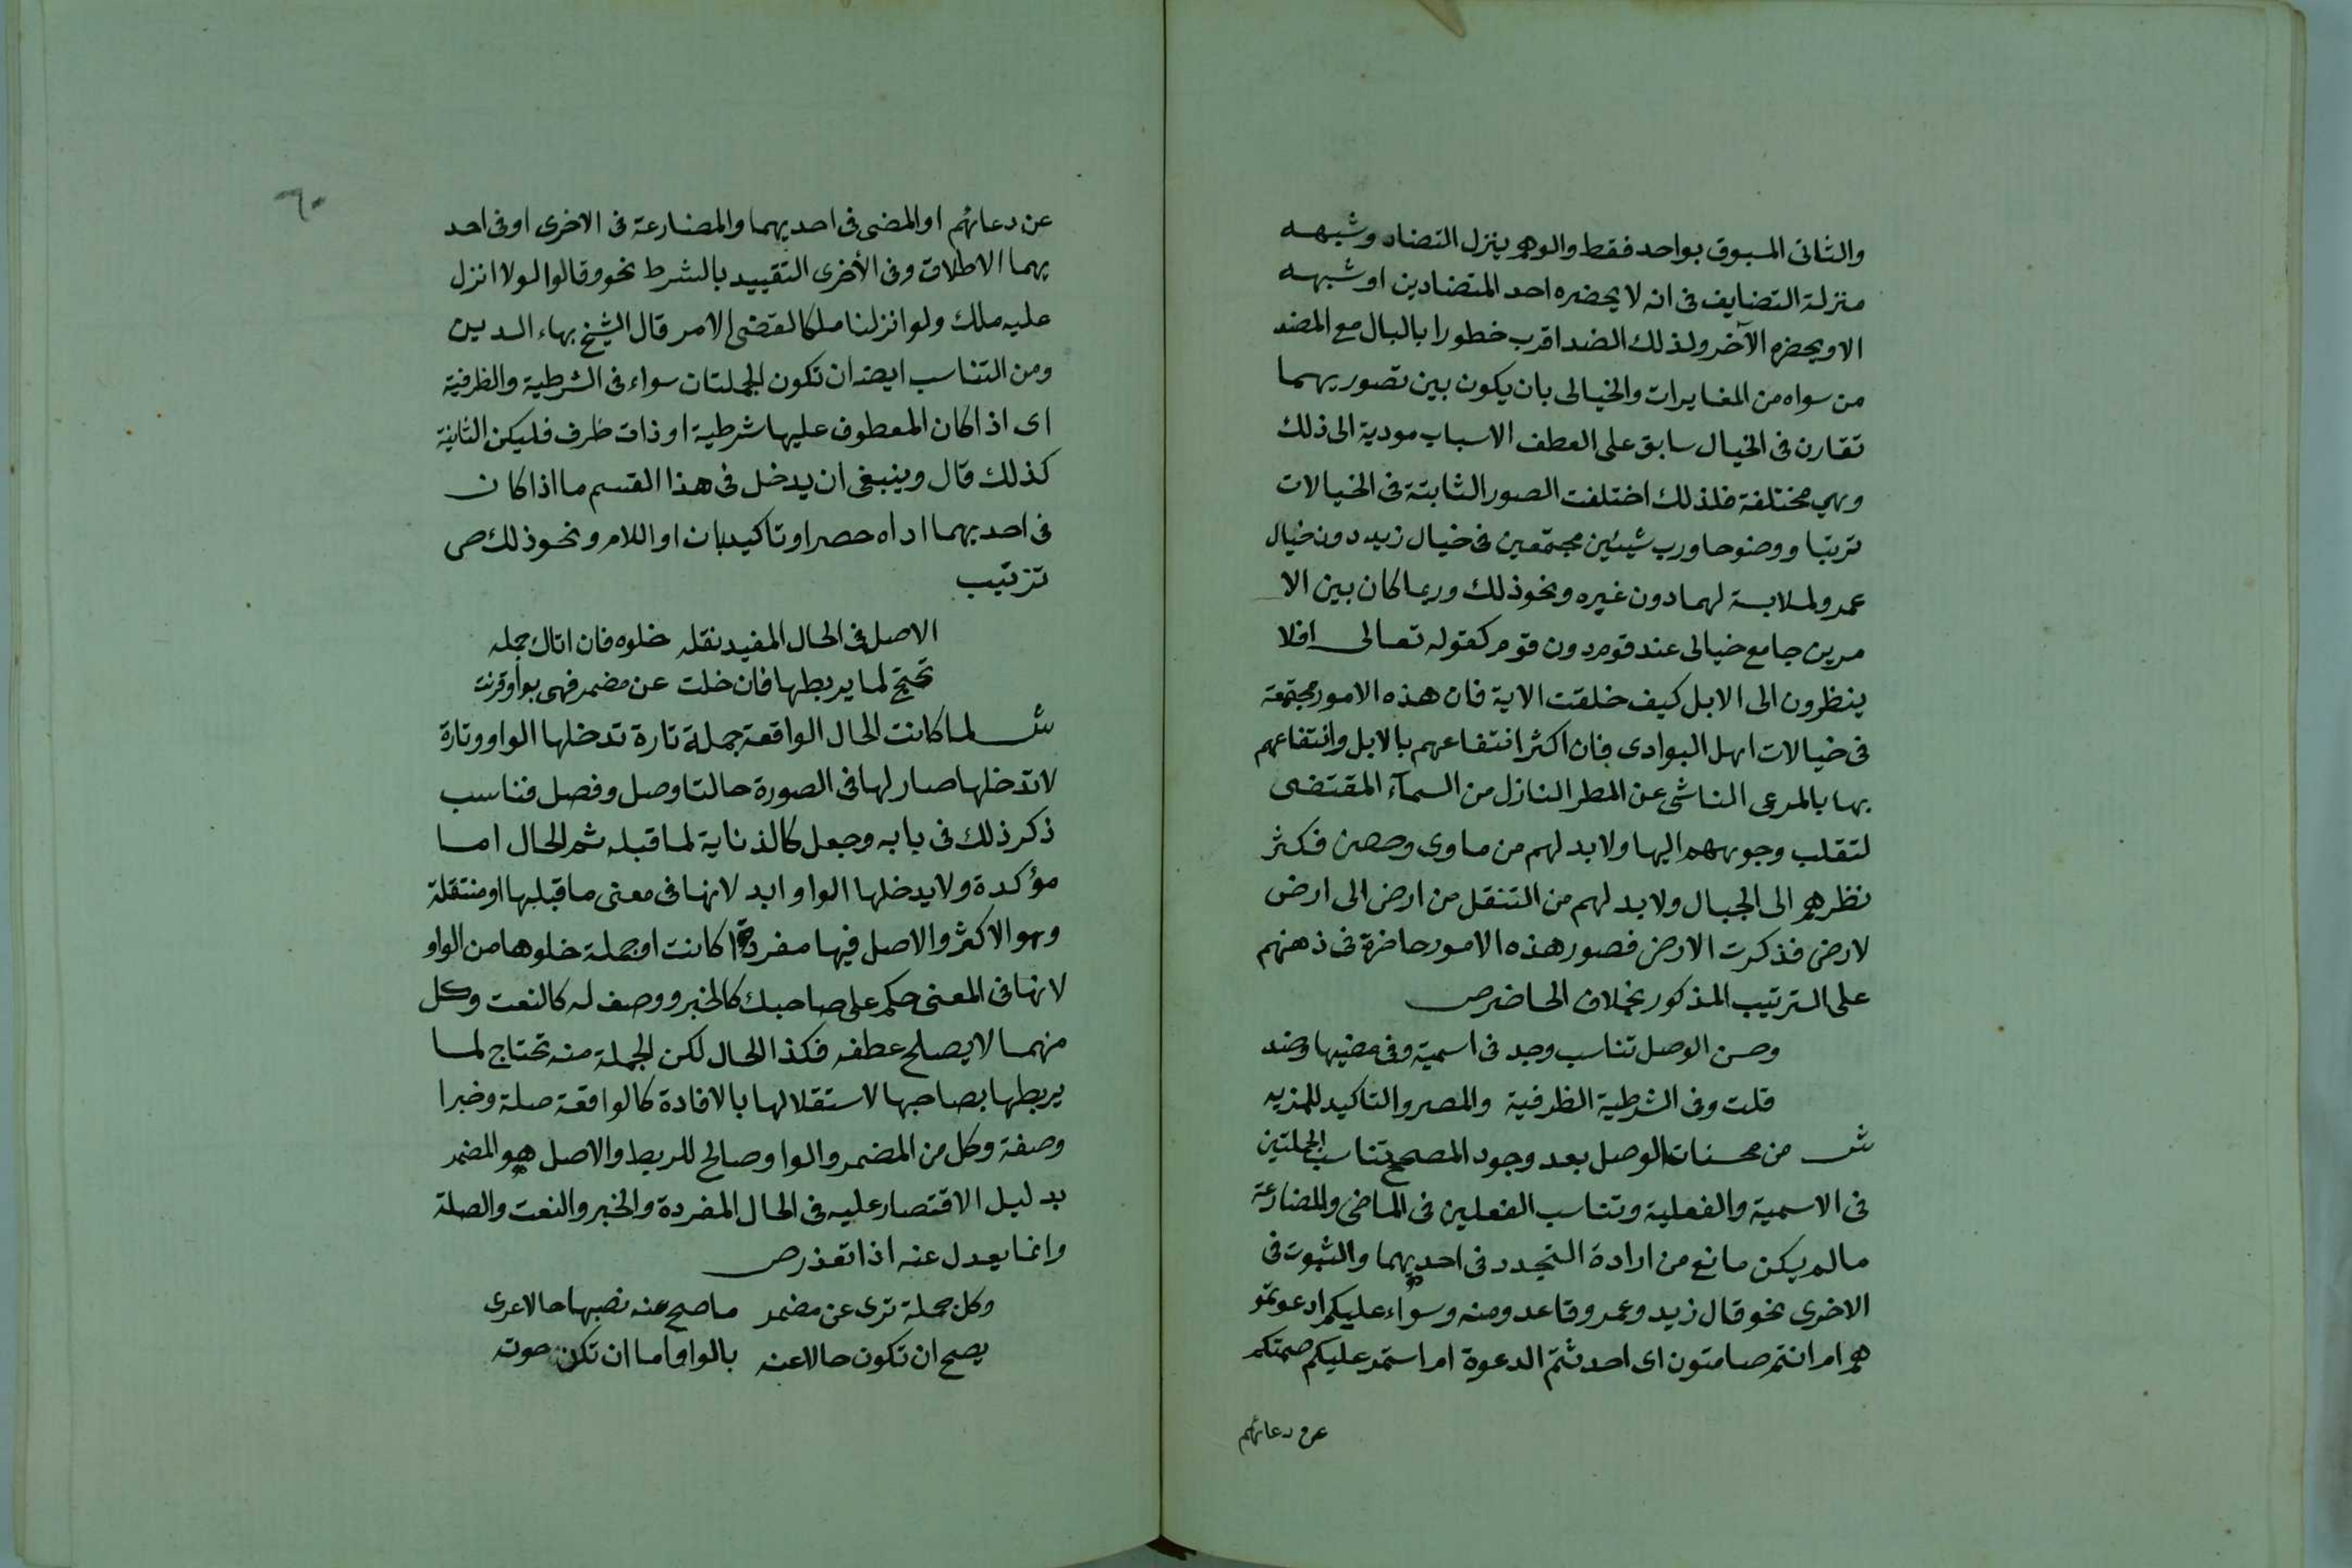 والثانى المسبوق بواحد فقط والوهم ينزل التضاد وشبهه
منزلة التضايف فى انه لا يحضره احد المتضادين او شبهه
الا ويحضره الآخر ولذلك الضد اقرب خطورا بالبال مع الضد
من سواه من المغايرات والخيالى بان يكون بين تصوريهما
تقارن فى الخيال سابق على العطف الاسباب مودية الى ذلك
وهي مختلفة فلذلك اختلفت الصور الثابتة فى الخيالات
ترتبا ووضوحا ورب شيئين مجتمعين فى خيال زيد دون خيال
عمرو لملابسة لهما دون غيره ونحو ذلك وربما كان بين الا
مرين جامع خيالى عند قوم دون قوم كقوله تعالى افلا
ينظرون الى الابل كيف خلقت الاية فان هذه الامور مجتمعة
فى خيالات اهل البوادى فان اكثر انتفاعهم بالابل وانتفاعهم
بها بالمرعى الناشى عن المطر النازل من السمآء المقتضى
لتقلب وجوههم اليها ولا بد لهم من ماوى وحصن فكثر
نظرهم الى الجبال ولا بد لهم من التنقل من ارض الى ارض
لارض فذكرت الارض فصور هذه الامور حاضرة فى ذهنهم
على الترتيب المذكور بخلاف الحاضر ص
وحسن الوصل تناسب وجد فى اسمية وفى مضيها وضد
قلت وفى الشرطية الظرفية والحصر والتاكيد للمزيه
ش من محسنات الوصل بعد وجود المصحح تناسب الجملتين
فى الاسمية والفعلية وتناسب الفعلين فى الماضى والمضارعة
مالم يكن مانع من ارادة التجدد فى احديهما والثبوت فى
الاخرى نحو قال زيد وعمرو قاعد ومنه وسواء عليكم ادعوتمو
هم ام انتم صامتون اى احدثتم الدعوة ام استمر عليكم صمتكم
عن دعائهم
٦٠
عن دعائهم او المضى فى احديهما والمضارعة فى الاخرى او فى احد
يهما الاطلاق وفى الأخرى التقييد بالشرط نحو وقالوا لولا انزل
عليه ملك ولو انزلنا ملكا لقضى الامر قال الشيخ بهاء الدين
ومن التناسب ايضا ان تكون الجملتان سواء فى الشرطية والظرفية
اى اذا كان المعطوف عليها شرطية او ذات ظرف فليكن الثانية
كذلك قال وينبغى ان يدخل فى هذا القسم ما اذا كان
فى احديهما اداه حصر او تاكيد بان او اللام ونحو ذلك ص
تزتيب
الاصل فى الحال المفيد نقله خلوه فان اتاك جمله
تحتج لما يربطها فان خلت عن مضمر فهى بواو قرنت
ش لما كانت الحال الواقعة جملة تارة تدخلها الواو وتارة
لا تدخلها صار لها فى الصورة حالتا وصل وفصل فناسب
ذكر ذلك فى بابه وجعل كالذناية لما قبله ثم الحال اما
مؤكدة ولا يدخلها الواو ابد لانها فى معنى ما قبلها او منتقلة
وهو الاكثر والاصل فيها مفردة كانت او جملة خلوها من الواو
لانها فى المعنى حكم على صاحبك كالخبر ووصف له كالنعت وكل
منهما لا يصلح عطفه فكذا الحال لكن الجملة منه تحتاج لما
يربطها بصاحبها لاستقلالها بالافادة كالواقعة صلة وخبرا
وصفة وكل من المضمر والواو صالح للربط والاصل هو المضمر
بدليل الاقتصار عليه فى الحال المفردة والخبر والنعت والصلة
وانما يعدل عنه اذا تعذر ص
وكل جملة ترى عن مضمر ما صح عنه نصبها حالا عرى
يصح ان تكون حالا عنه بالواو اما ان تكن حوته